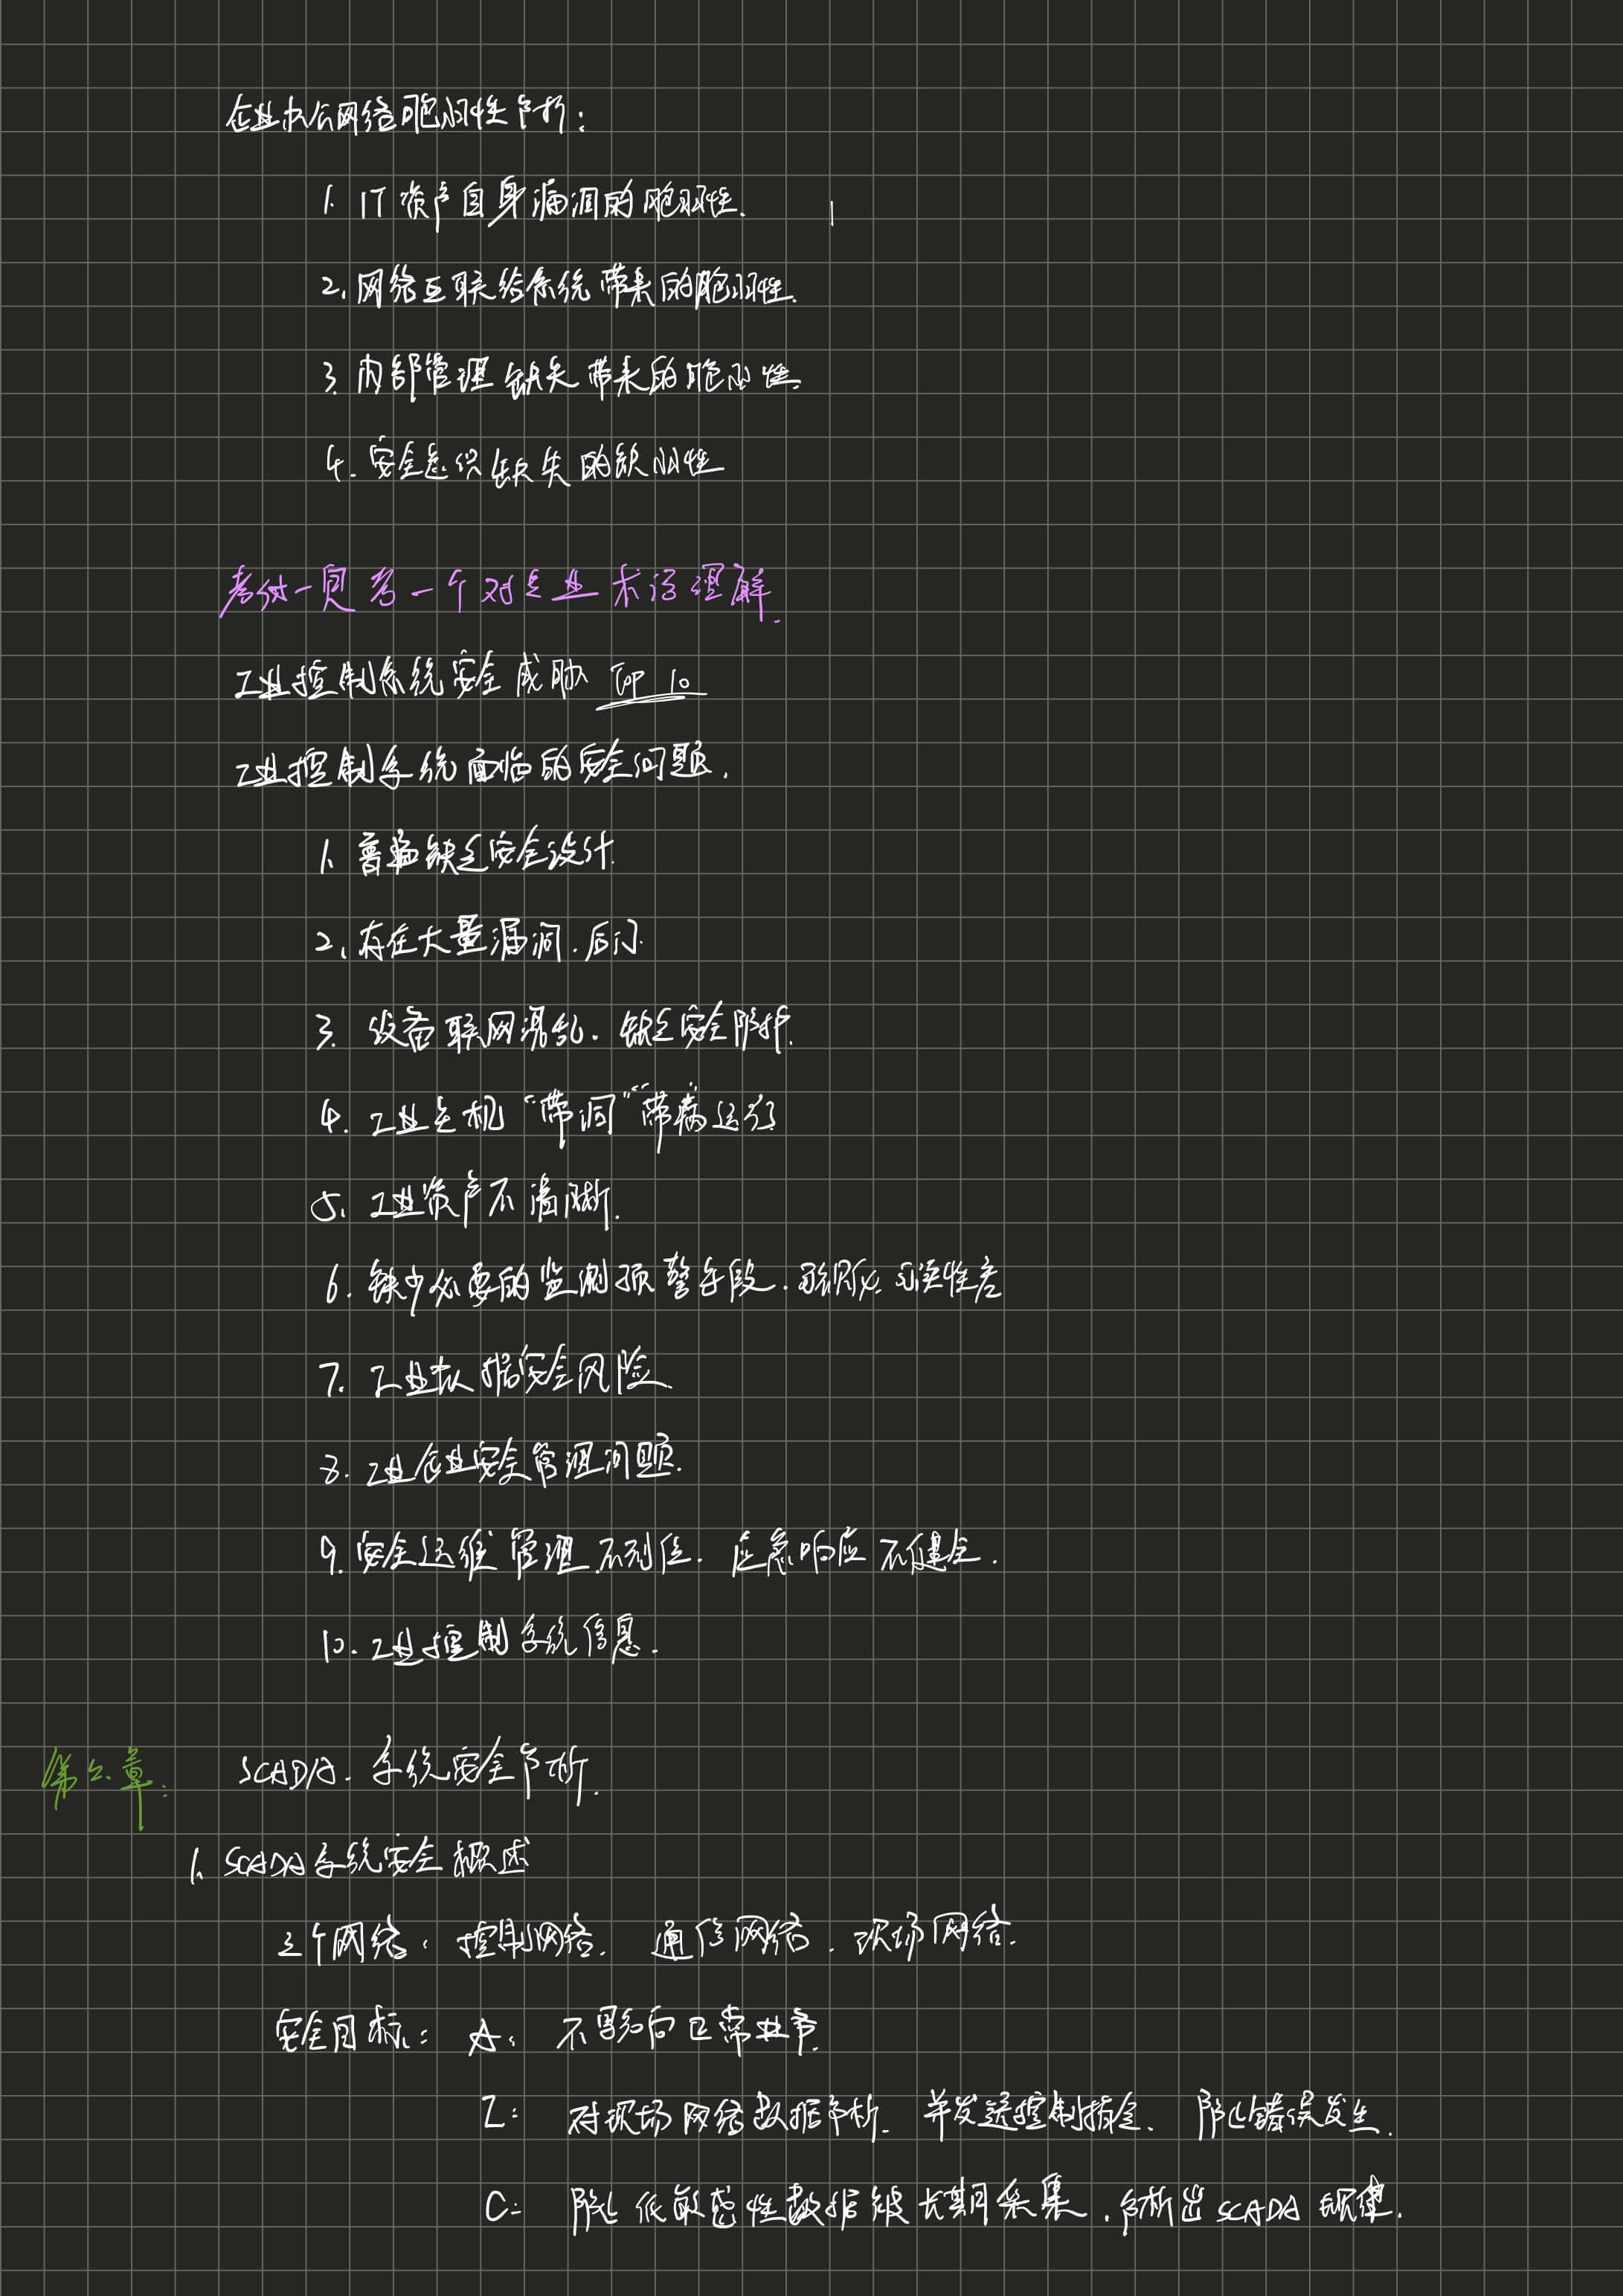 企业办公网络脆弱性分析：
1. IT 资产自身漏洞的脆弱性.
2. 网络互联给系统带来的脆弱性.
3. 内部管理缺失带来的脆弱性.
4. 安全意识缺失的脆弱性
一个对专业术语理解.
工业控制系统安全威胁 TOP 10
工业控制系统面临的安全问题.
1. 普遍缺乏安全设计.
2. 存在大量漏洞.后门.
3. 设备联网混乱. 缺乏安全防护.
4. 工业主机 “带洞”“带病运行
5. 工业资产不清晰.
6. 缺少必要的监测预警手段.
7. 工业数据安全风险
8. 工业企业安全管理问题.
9. 安全运维管理不到位. 应急响应不健全.
10. 工业控制系统信息.
第六章： SCADA. 系统安全分析.
1. SCADA系统安全概述
三个网络： 控制网络. 通信网络. 现场网络.
安全目标： A： 不影响正常业务.
I： 对现场网络数据分析. 并发送控制指令. 防止错误发生.
C： 防止低敏感性数据被长期采集. 分析出 SCADA 规律.